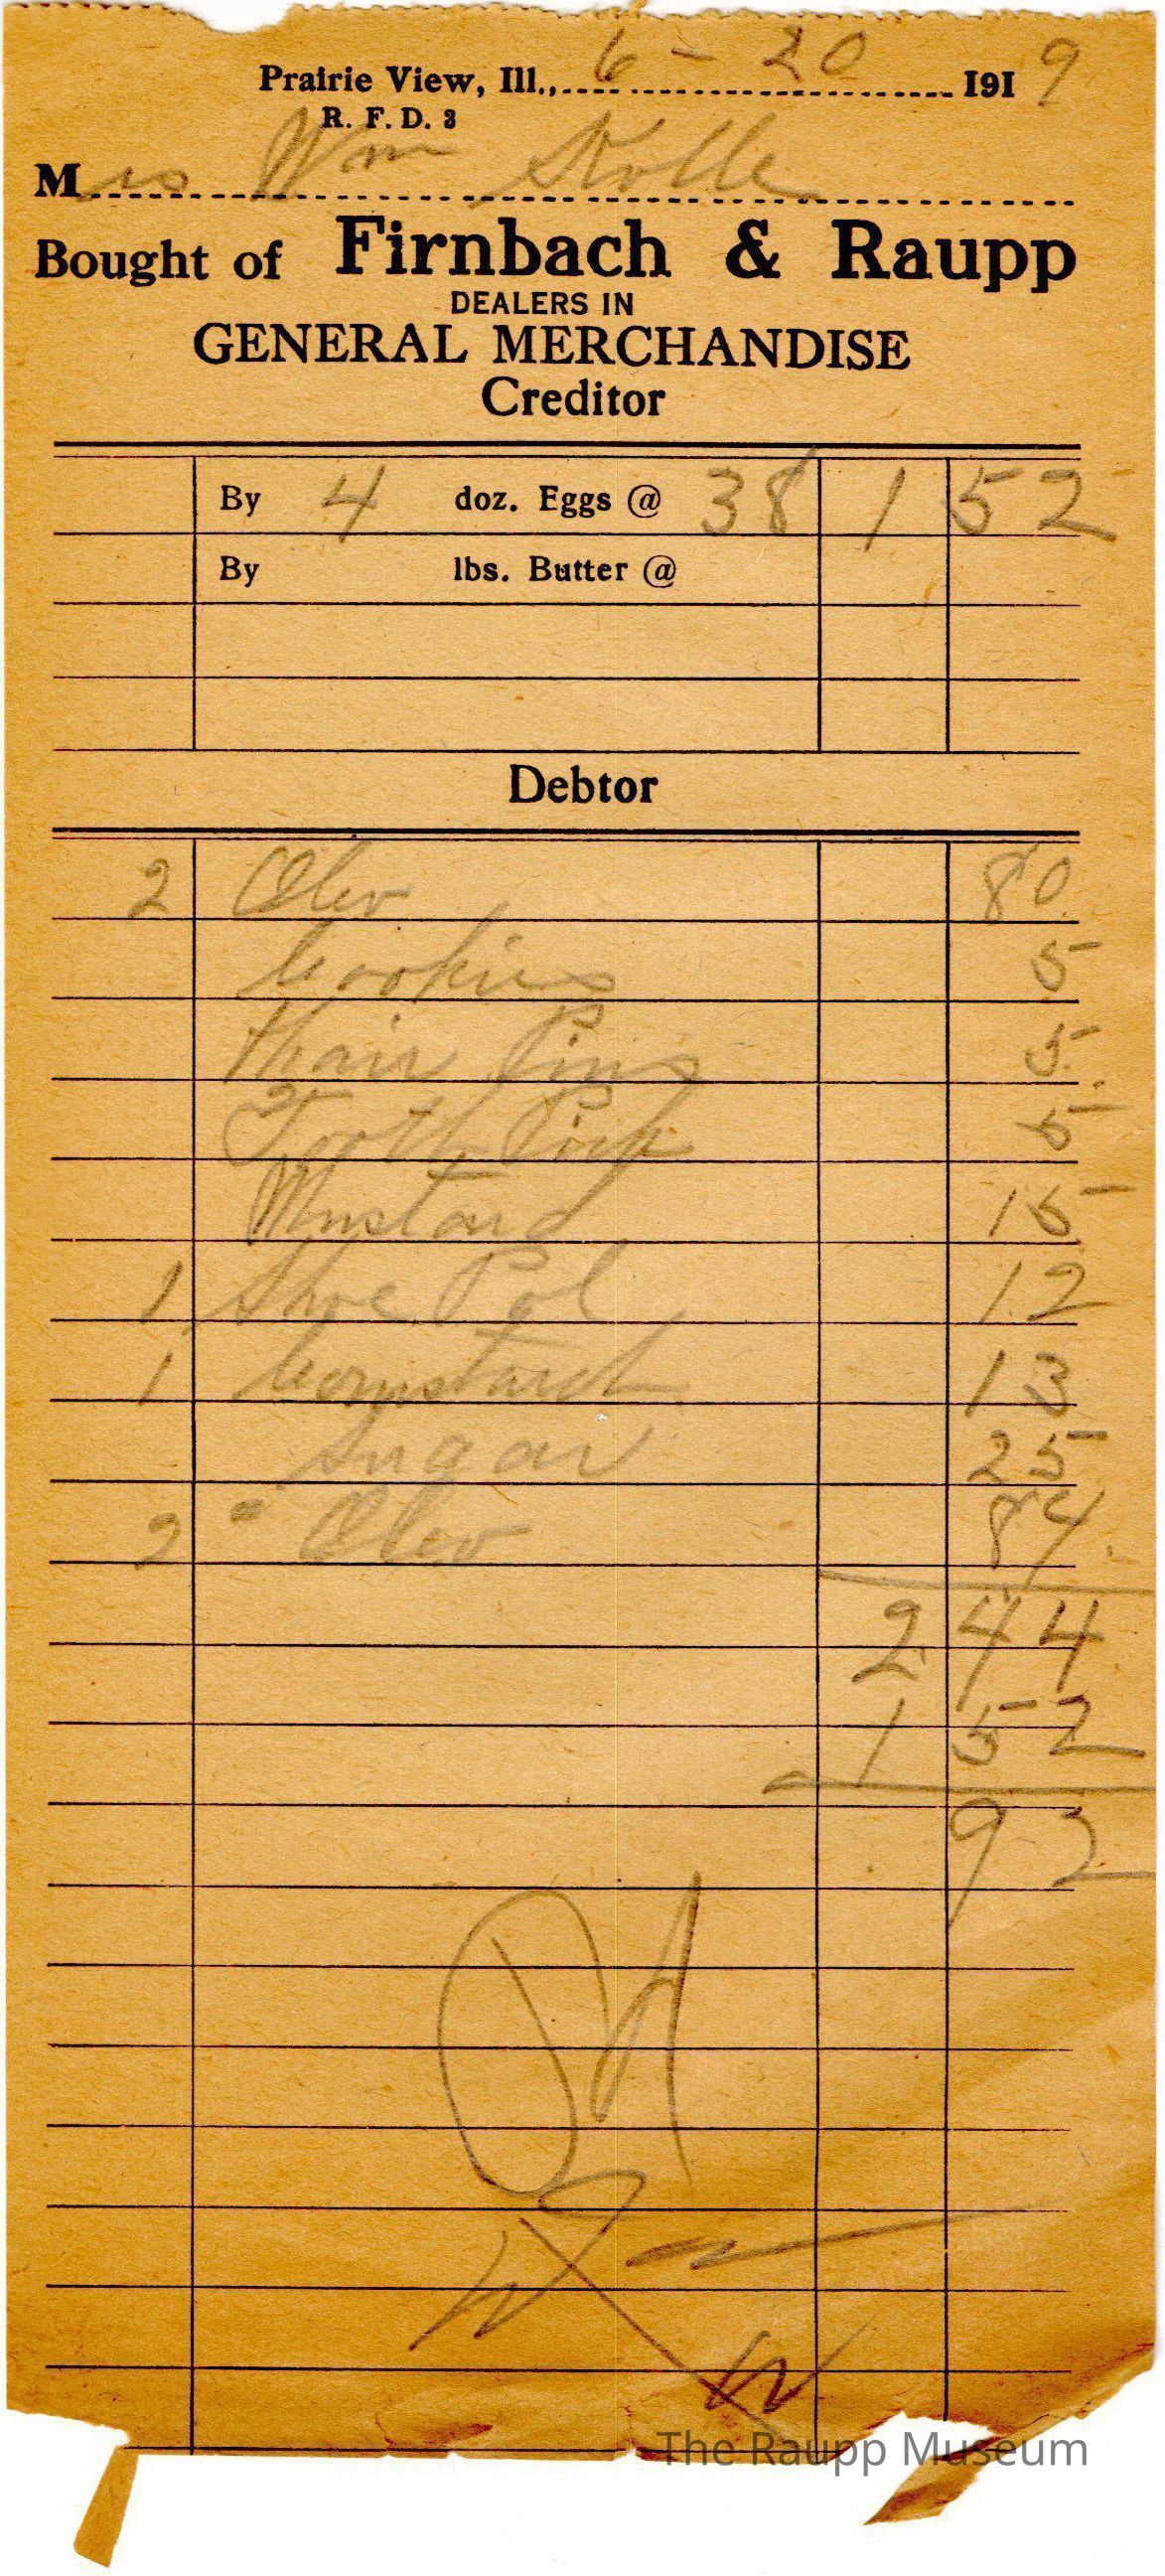 Prairie View, Ill., 6 - 20 1919
R. F. D. 3
Mrs Wm Stolle
Bought of Firnbach & Raupp
DEALERS IN
GENERAL MERCHANDISE
Creditor
By 4 doz. Eggs @ 38 1 52
By lbs. Butter @
Debtor
2 Oleo 80
Cookies 5
Hair Pins 5
Tooth Pick 5
Mustard 15
1 Shoe Pol 12
1 Cornstarch 13
Sugar 25
2 " Oleo 84
2 44
1 52
92
The Raupp Museum